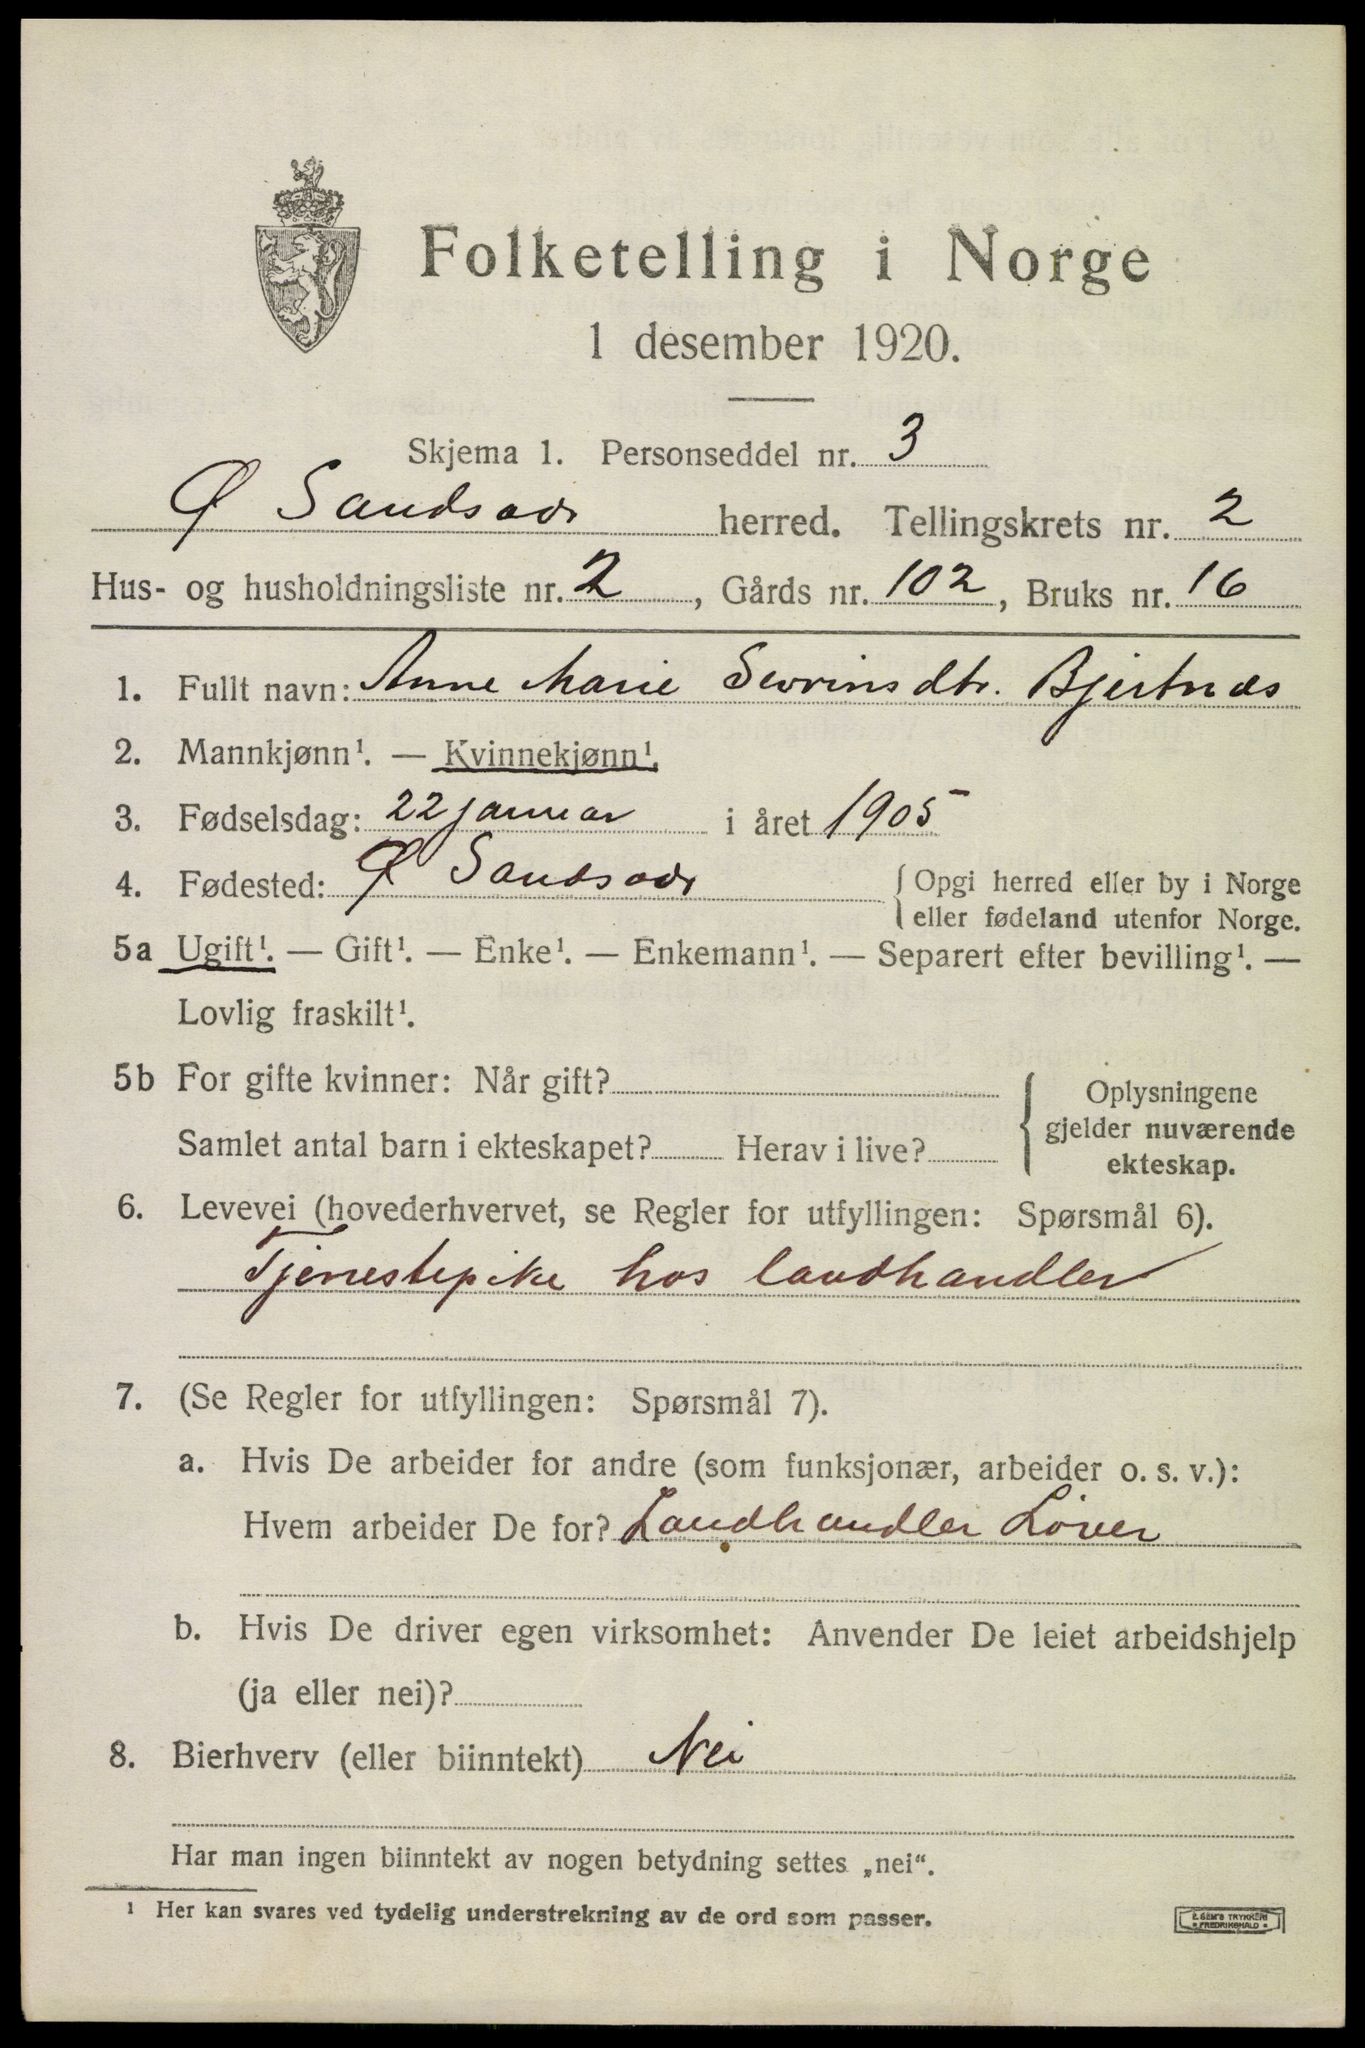 Folketelling i Norge
1 desember 1920.
Skjema 1. Personseddel nr. 3
Ø Sandsvær herred. Tellingskrets nr. 2
Hus- og husholdningsliste nr. 2, Gårds nr. 102, Bruks nr. 16
1. Fullt navn: Anne Marie Sevrinsdtr. Bjertnæs
2. Mannkjønn¹. — Kvinnekjønn¹.
3. Fødselsdag: 22 januar i året 1905
4. Fødested: Ø Sandsvær { Opgi herred eller by i Norge
eller fødeland utenfor Norge.
5a Ugift¹. — Gift¹. — Enke¹. — Enkemann¹. — Separert efter bevilling¹. —
Lovlig fraskilt¹.
5b For gifte kvinner: Når gift?
Samlet antal barn i ekteskapet? Herav i live?
Oplysningene
gjelder nuværende
ekteskap.
6. Levevei (hovederhvervet, se Regler for utfyllingen: Spørsmål 6).
Tjenestepike hos landhandler
7. (Se Regler for utfyllingen: Spørsmål 7).
a. Hvis De arbeider for andre (som funksjonær, arbeider o. s. v.):
Hvem arbeider De for? Landhandler Löver
b. Hvis De driver egen virksomhet: Anvender De leiet arbeidshjelp
(ja eller nei)?
8. Bierhverv (eller biinntekt) Nei
Har man ingen biinntekt av nogen betydning settes „nei“.
¹ Her kan svares ved tydelig understrekning av de ord som passer.
E. SEM'S TRYKKERI
FREDRIKSHALD